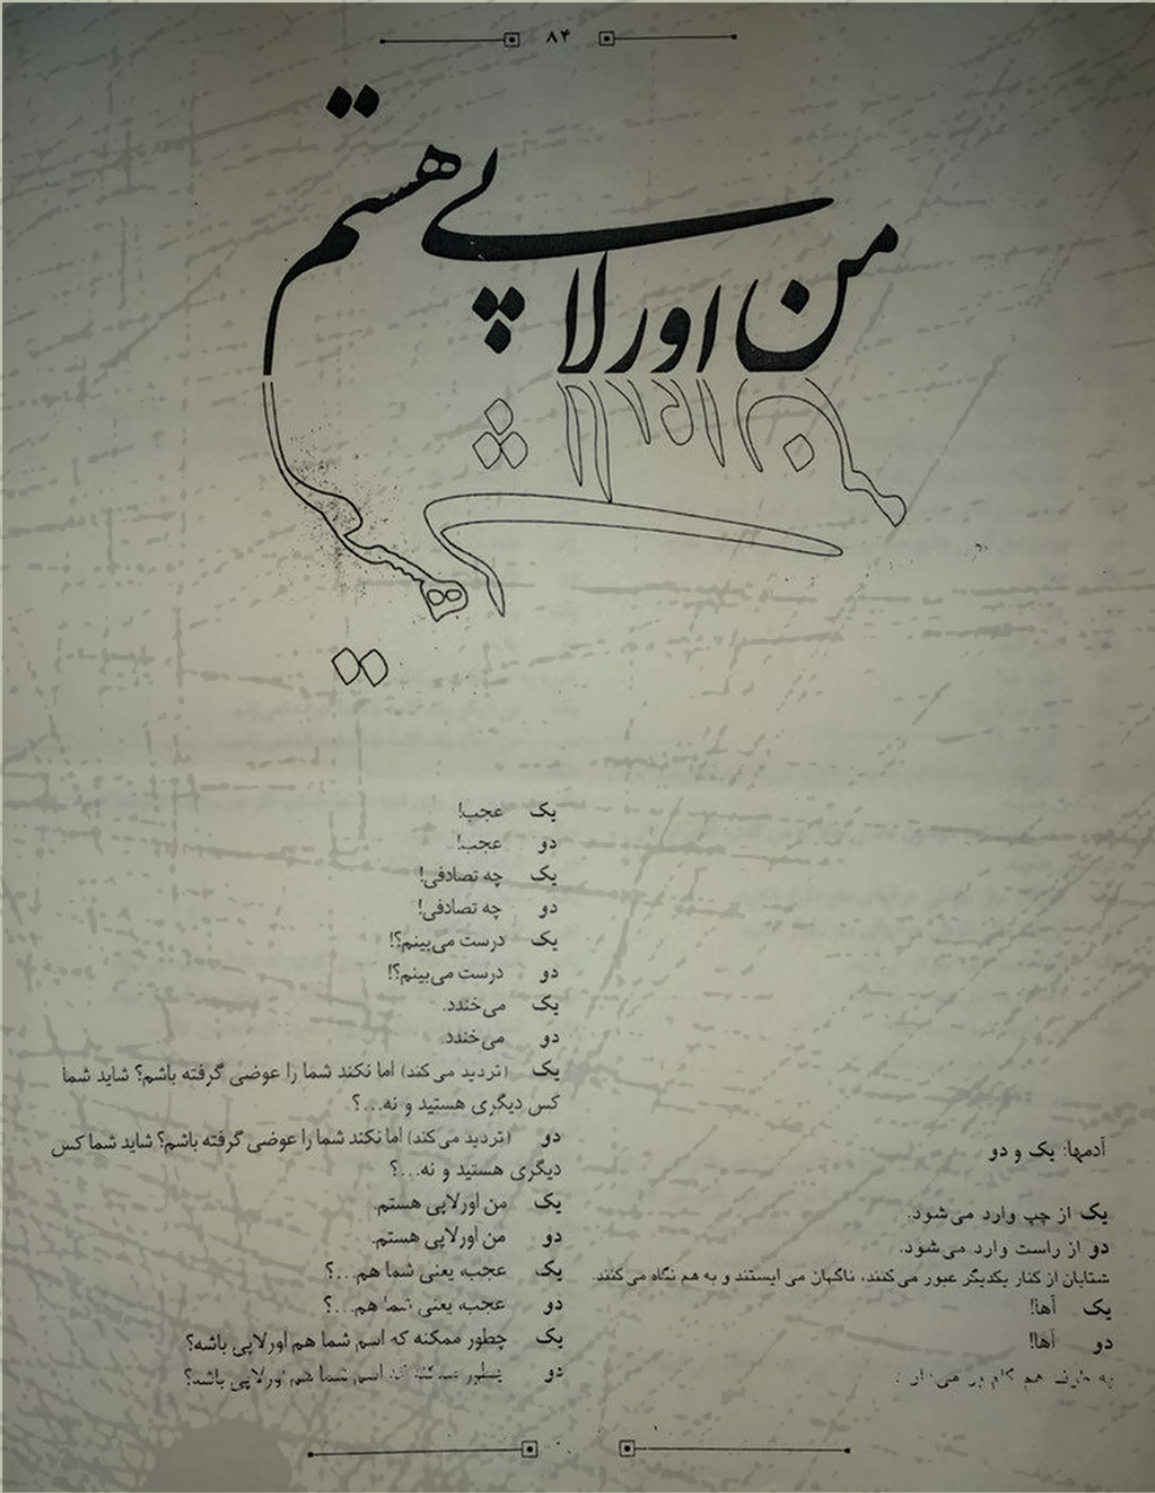 ۸۴
من اورلاپی هستم
آدمها: یک و دو
یک از چپ وارد می‌شود.
دو از راست وارد می‌شود.
شتابان از کنار یکدیگر عبور می‌کنند، ناگهان می ایستند و به هم نگاه می‌کنند.
یک آها!
دو آها!
به طرف هم گام بر
یک عجب!
دو عجب!
یک چه تصادفی!
دو چه تصادفی!
یک درست می‌بینم؟!
دو درست می‌بینم؟!
یک می‌خندد.
دو می‌خندد.
یک (تردید می‌کند) اما نکند شما را عوضی گرفته باشم؟ شاید شما
کس دیگری هستید و نه...؟
دو (تردید می‌کند) اما نکند شما را عوضی گرفته باشم؟ شاید شما کس
دیگری هستید و نه...؟
یک من اورلاپی هستم.
دو من اورلاپی هستم.
یک عجب، یعنی شما هم...؟
دو عجب، یعنی شما هم...؟
یک چطور ممکنه که اسم شما هم اورلاپی باشه؟
دو اسم شما هم اورلاپی باشه؟